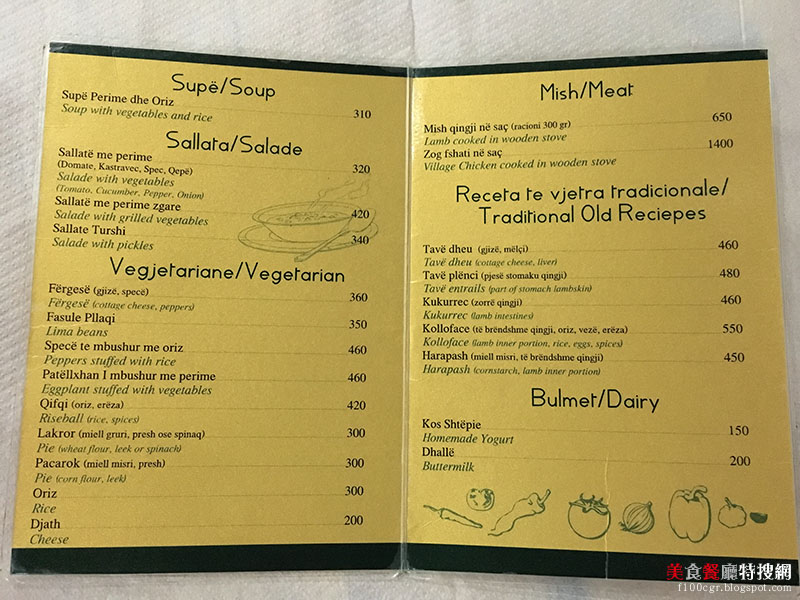 Supë/Soup
Supë Perime dhe Oriz 310
Soup with vegetables and rice
Sallata/Salade
Sallatë me perime 320
(Domate, Kastravec, Spec, Qepë)
Salade with vegetables
(Tomato, Cucumber, Pepper, Onion)
Sallatë me perime zgare 420
Salade with grilled vegetables
Sallate Turshi 340
Salade with pickles
Vegjetariane/Vegetarian
Fërgesë (gjizë, specë) 360
Fërgesë (cottage cheese, peppers)
Fasule Pllaqi 350
Lima beans
Specë te mbushur me oriz 460
Peppers stuffed with rice
Patëllxhan I mbushur me perime 460
Eggplant stuffed with vegetables
Qifqi (oriz, erëza) 420
Riseball (rice, spices)
Lakror (miell gruri, presh ose spinaq) 300
Pie (wheat flour, leek or spinach)
Pacarok (miell misri, presh) 300
Pie (corn flour, leek)
Oriz 300
Rice
Djath 200
Cheese
Mish/Meat
Mish qingji në saç (racioni 300 gr) 650
Lamb cooked in wooden stove
Zog fshati në saç 1400
Village Chicken cooked in wooden stove
Receta te vjetra tradicionale/
Traditional Old Reciepes
Tavë dheu (gjizë, mëlçi) 460
Tavë dheu (cottage cheese, liver)
Tavë plënci (pjesë stomaku qingji) 480
Tavë entrails (part of stomach lambskin)
Kukurrec (zorrë qingji) 460
Kukurrec (lamb intestines)
Kolloface (të brëndshme qingji, oriz, vezë, erëza) 550
Kolloface (lamb inner portion, rice, eggs, spices)
Harapash (miell misri, të brëndshme qingji) 450
Harapash (cornstarch, lamb inner portion)
Bulmet/Dairy
Kos Shtëpie 150
Homemade Yogurt
Dhallë 200
Buttermilk
美食餐廳特搜網
f100cgr.blogspot.com